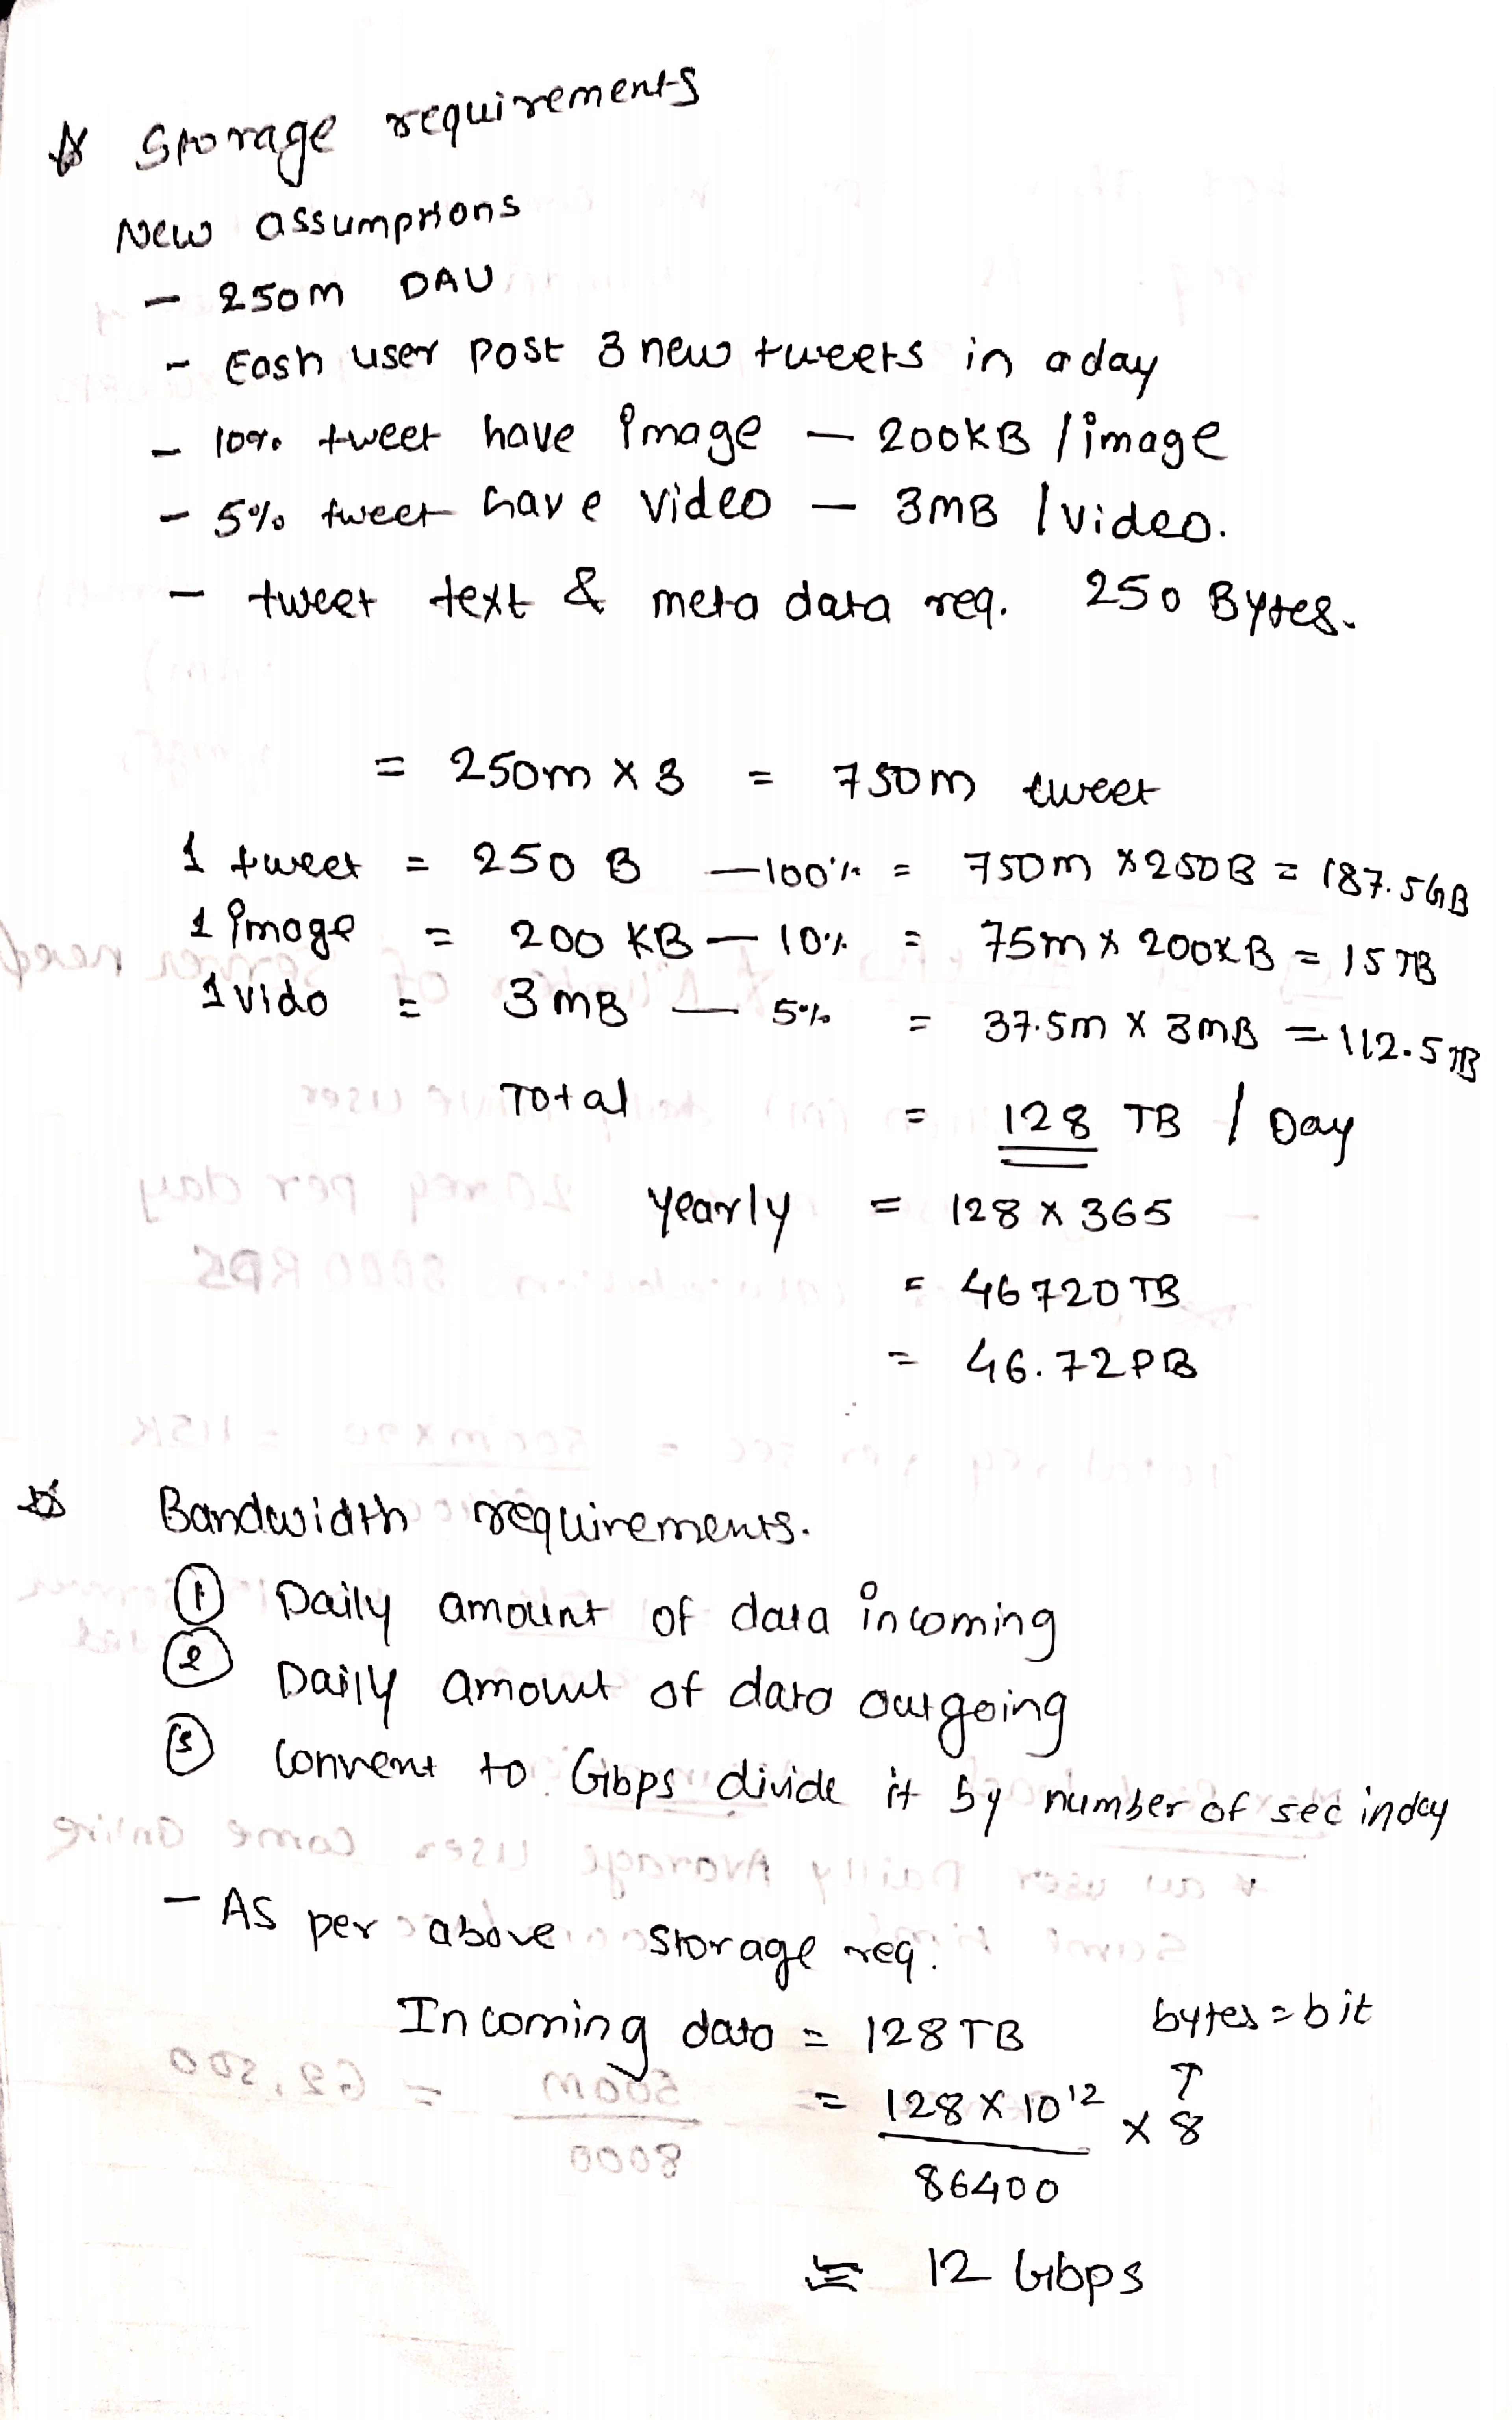 Storage requirements
New assumptions
- 250m DAU
- Eash user post 3 new tweets in a day
- 10% tweet have image - 200KB / image
- 5% tweet have video - 3MB / video.
- tweet text & meta data req. 250 Bytes.
= 250m x 3 = 750m tweet
1 tweet = 250 B - 100% = 750m x 250B = 187.5GB
1 image = 200 KB - 10% = 75m x 200KB = 15TB
1 vido = 3 MB - 5% = 37.5m x 3MB = 112.5TB
Total = 128 TB / Day
yearly = 128 x 365
= 46720TB
= 46.72PB
Bandwidth requirements.
① Daily amount of data incoming
② Daily amount of data outgoing
③ Convent to Gbps divide it by number of sec in day
- As per above storage req.
Incoming data = 128TB bytes = bit
= 128 x 10¹² x 8 ↑
86400
≅ 12 Gbps